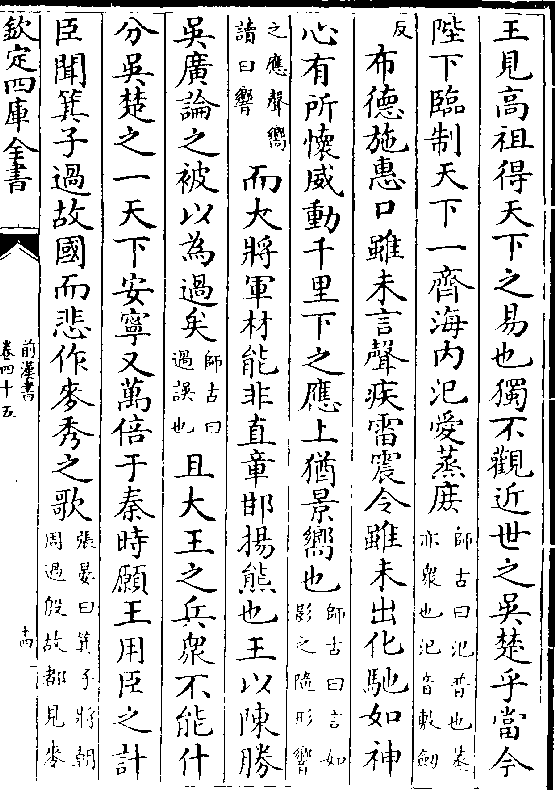 王見高祖得天下之易也獨不觀近世之吳楚乎當今
陛下臨制天下一齊海內汜愛蒸庶師古曰汜普也蒸亦衆也汜音敷劔
反布德施惠口雖未言聲疾雷震令雖未出化馳如神
心有所懷威動千里下之應上猶景嚮也師古曰言如影之隨形響
之應聲嚮讀曰響而大將軍材能非直章邯揚熊也王以陳勝
吳廣論之被以為過矣師古曰過誤也且大王之兵衆不能什
分吳楚之一天下安寧又萬倍于秦時願王用臣之計
臣聞箕子過故國而悲作麥秀之歌張晏曰箕子將朝周過殷故都見麥
欽定四庫全書
前漢書
卷四十五
十四